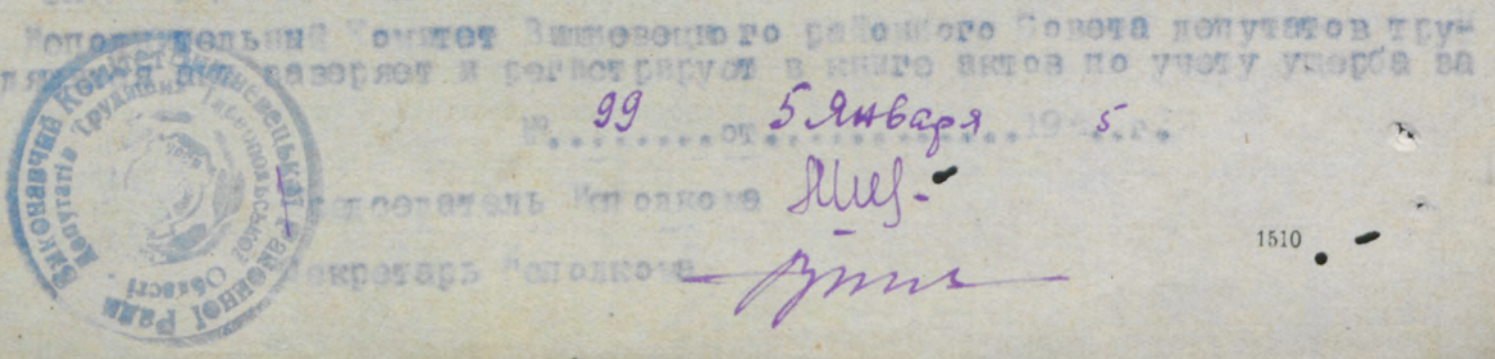 Исполнительный Комитет Вишневецкого районного Совета депутатов тру-
заверяет и регистрирует в книге актов по учету ущерба за
№ 99 от 5 Января 19 5 г.
Председатель Исполкома
Секретарь Исполкома
1510
Виконавчий Комітет Вишневецької Районної Ради
Депутатів Трудящих Тернопольської Області